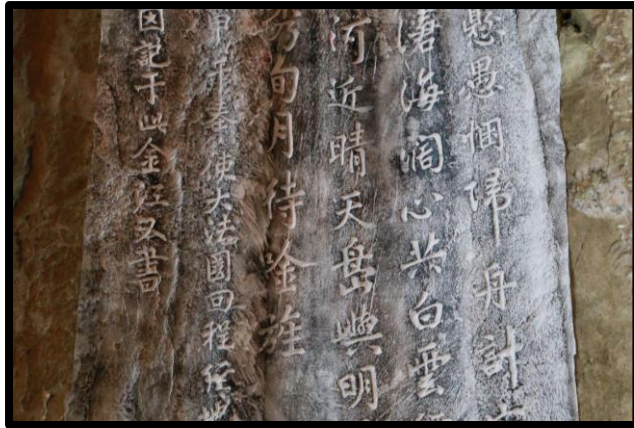 愚悃歸舟計
滄海闊心共白雲
河近晴天島嶼明
旬月待金旌
奉使大法國回程經
因記于此金江又書